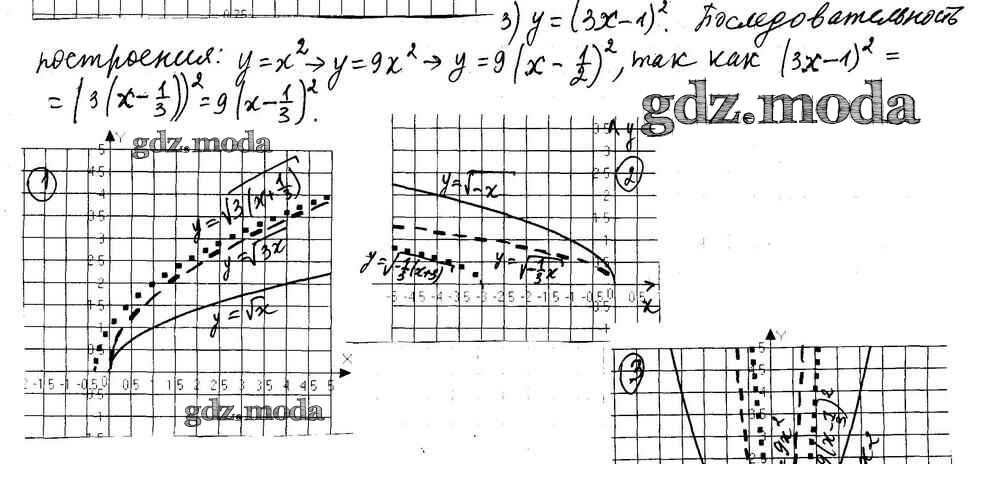 3) y = (3x-1)². Последовательность
построения: y = x² → y = 9x² → y = 9(x - 1/2)², так как (3x-1)² =
= (3(x - 1/3))² = 9(x - 1/3)².
gdz.moda
gdz.moda
1
Y
y = √3(x + 1/3)
y = √3x
y = √x
X
5
4.5
4
3.5
3
2.5
2
1.5
1
0.5
-2 -1.5 -1 -0.5 0 0.5 1 1.5 2 2.5 3 3.5 4 4.5 5
gdz.moda
2
y
y = √-x
y = √-1/3(x+3)
y = √-1/3x
-5 -4.5 -4 -3.5 -3 -2.5 -2 -1.5 -1 -0.5 0 0.5
x
3
Y
= 9x²
9(x - 1/3)²
x²